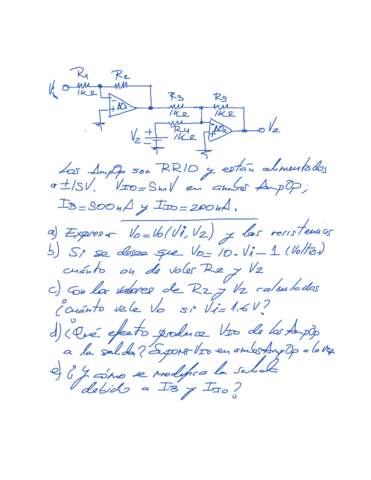 R1 R2
Vi 1KΩ
AO1
R3 R5
1KΩ 1KΩ
R4
1KΩ AO2
V2 V2
Los AmpOp son RRIO y están alimentados
a ±15V. VIO=5mV en ambos AmpOp,
IB=300nA y IIO=200nA.
a) Expresar Vo=Vo(Vi,V2) y las resistencias
b) Si se desea que Vo=10·Vi-1 (Voltios)
cuánto han de valer R2 y V2
c) Con los valores de R2 y V2 calculados
¿cuánto vale Vo si Vi=1.6V?
d) ¿Qué efecto produce VIO de los AmpOp
a la salida? Suponer VIO en ambos AmpOp a la vez
e) ¿Y cómo se modifica la salida
debido a IB y IIO?